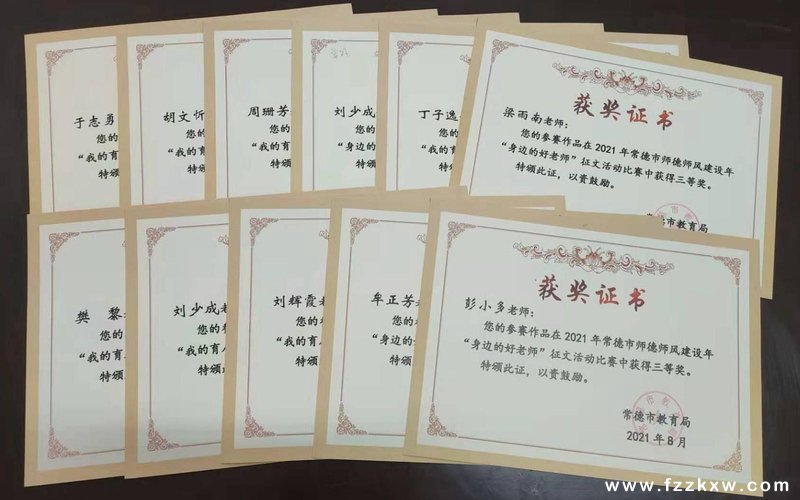 于志勇
您的
“我的育
特颁
胡文忻
您的
“我的育
特颁
周珊芳
您的
“我的育人
特颁
刘少成
您的
“身边的
特颁
丁子逸
您的
“我的
特颁
获奖证书
梁雨南老师：
您的参赛作品在2021年常德市师德师风建设年
“身边的好老师”征文活动比赛中获得三等奖。
特颁此证，以资鼓励。
常德市教育局
樊 黎
您的
“我的育
特颁
刘少成老
您的
“我的育
特颁此
刘辉霞老
您的
“我的育人
特颁此
牟正芳老
您的参
“身边的
特颁此
获奖证书
彭小多老师：
您的参赛作品在2021年常德市师德师风建设年
“身边的好老师”征文活动比赛中获得三等奖。
特颁此证，以资鼓励。
常德市教育局
2021年8月
www.fzzkxw.com